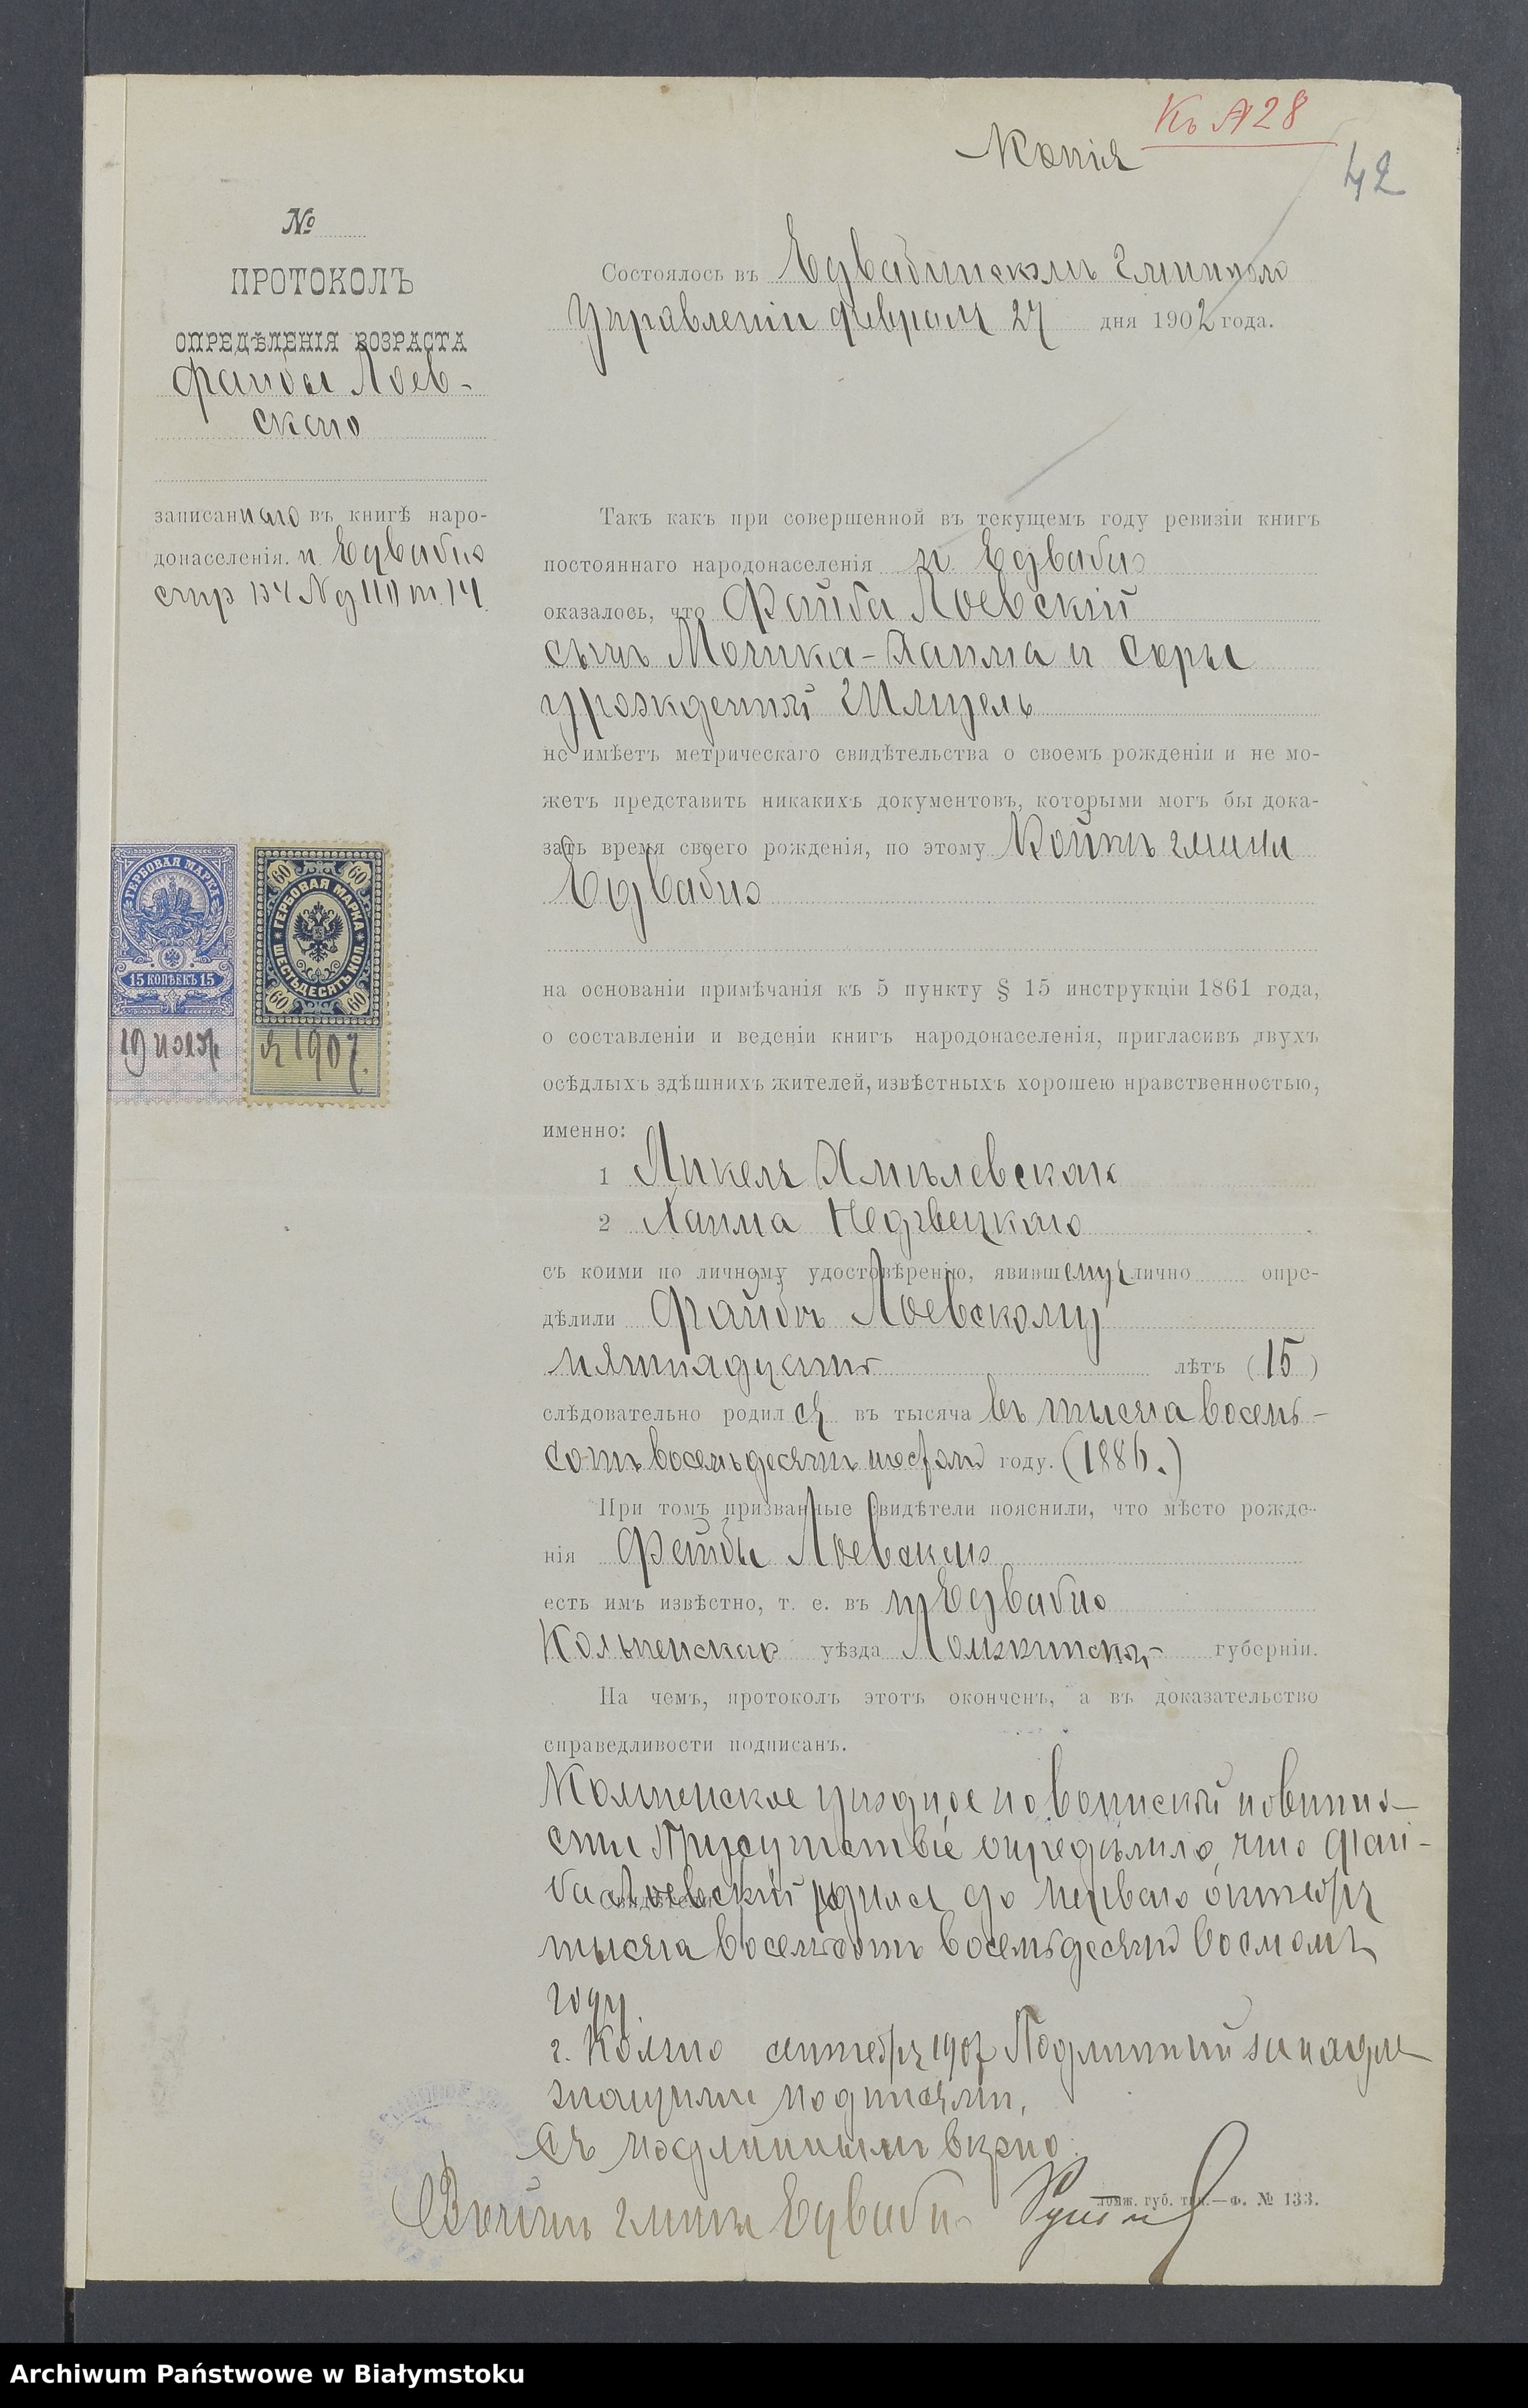 Къ №28
Копія
42
№
ПРОТОКОЛЪ
ОПРЕДѢЛЕНІЯ ВОЗРАСТА
Файбы Лоев-
скаго
записаннаго въ книгѣ наро-
донаселенія. п Едвабно
стр 134 № д 110 т. 14
Состоялось въ Едвабинскомъ Гминномъ
Управленіи февраля 27 дня 1902 года.
Такъ какъ при совершенной въ текущемъ году ревизіи книгъ
постояннаго народонаселенія п. Едвабно
оказалось, что Файба Лоевскій
сынъ Мошка-Хаима и Соры
урожденной Шлицель
не имѣетъ метрическаго свидѣтельства о своемъ рожденіи и не мо-
жетъ представить никакихъ документовъ, которыми могъ бы дока-
зать время своего рожденія, по этому Войтъ гмины
Едвабно
на основаніи примѣчанія къ 5 пункту § 15 инструкціи 1861 года,
о составленіи и веденіи книгъ народонаселенія, пригласивъ двухъ
осѣдлыхъ здѣшнихъ жителей, извѣстныхъ хорошею нравственностью,
именно:
1 Янкеля Хмѣлевскаго
2 Хаима Недзвецкаго
съ коими по личному удостовѣренію, явившемуся лично опре-
дѣлили Файбѣ Лоевскому
пятнадцать лѣтъ (15)
слѣдовательно родился въ тысяча въ тысяча восемь-
сотъ восемьдесятъ шестомъ году. (1886.)
При томъ призванные свидѣтели пояснили, что мѣсто рожде-
нія Файбы Лоевскаго
есть имъ извѣстно, т. е. въ п Едвабно
Кольненскаго уѣзда Ломжинской губерніи.
На чемъ, протоколъ этотъ оконченъ, а въ доказательство
справедливости подписанъ.
Кольненское уѣздное по воинской повинно-
сти Присутствіе опредѣлило, что Фай-
ба Лоевскій родился до перваго октября
Свидѣтели
тысяча восемьсотъ восемьдесятъ восьмомъ
году
г. Кольно сентября 1907 Подлинный за надле
жащими подписями.
Съ подлиннымъ вѣрно:
Войтъ гмины Едвабно
Ломж. губ. тип.—Ф. № 133.
ГЕРБОВАЯ МАРКА
15 КОПѢЕКЪ 15
60 60
ГЕРБОВАЯ МАРКА
ШЕСТЬДЕСЯТЪ КОП.
60 60
19 нояб я 1907.
Archiwum Państwowe w Białymstoku